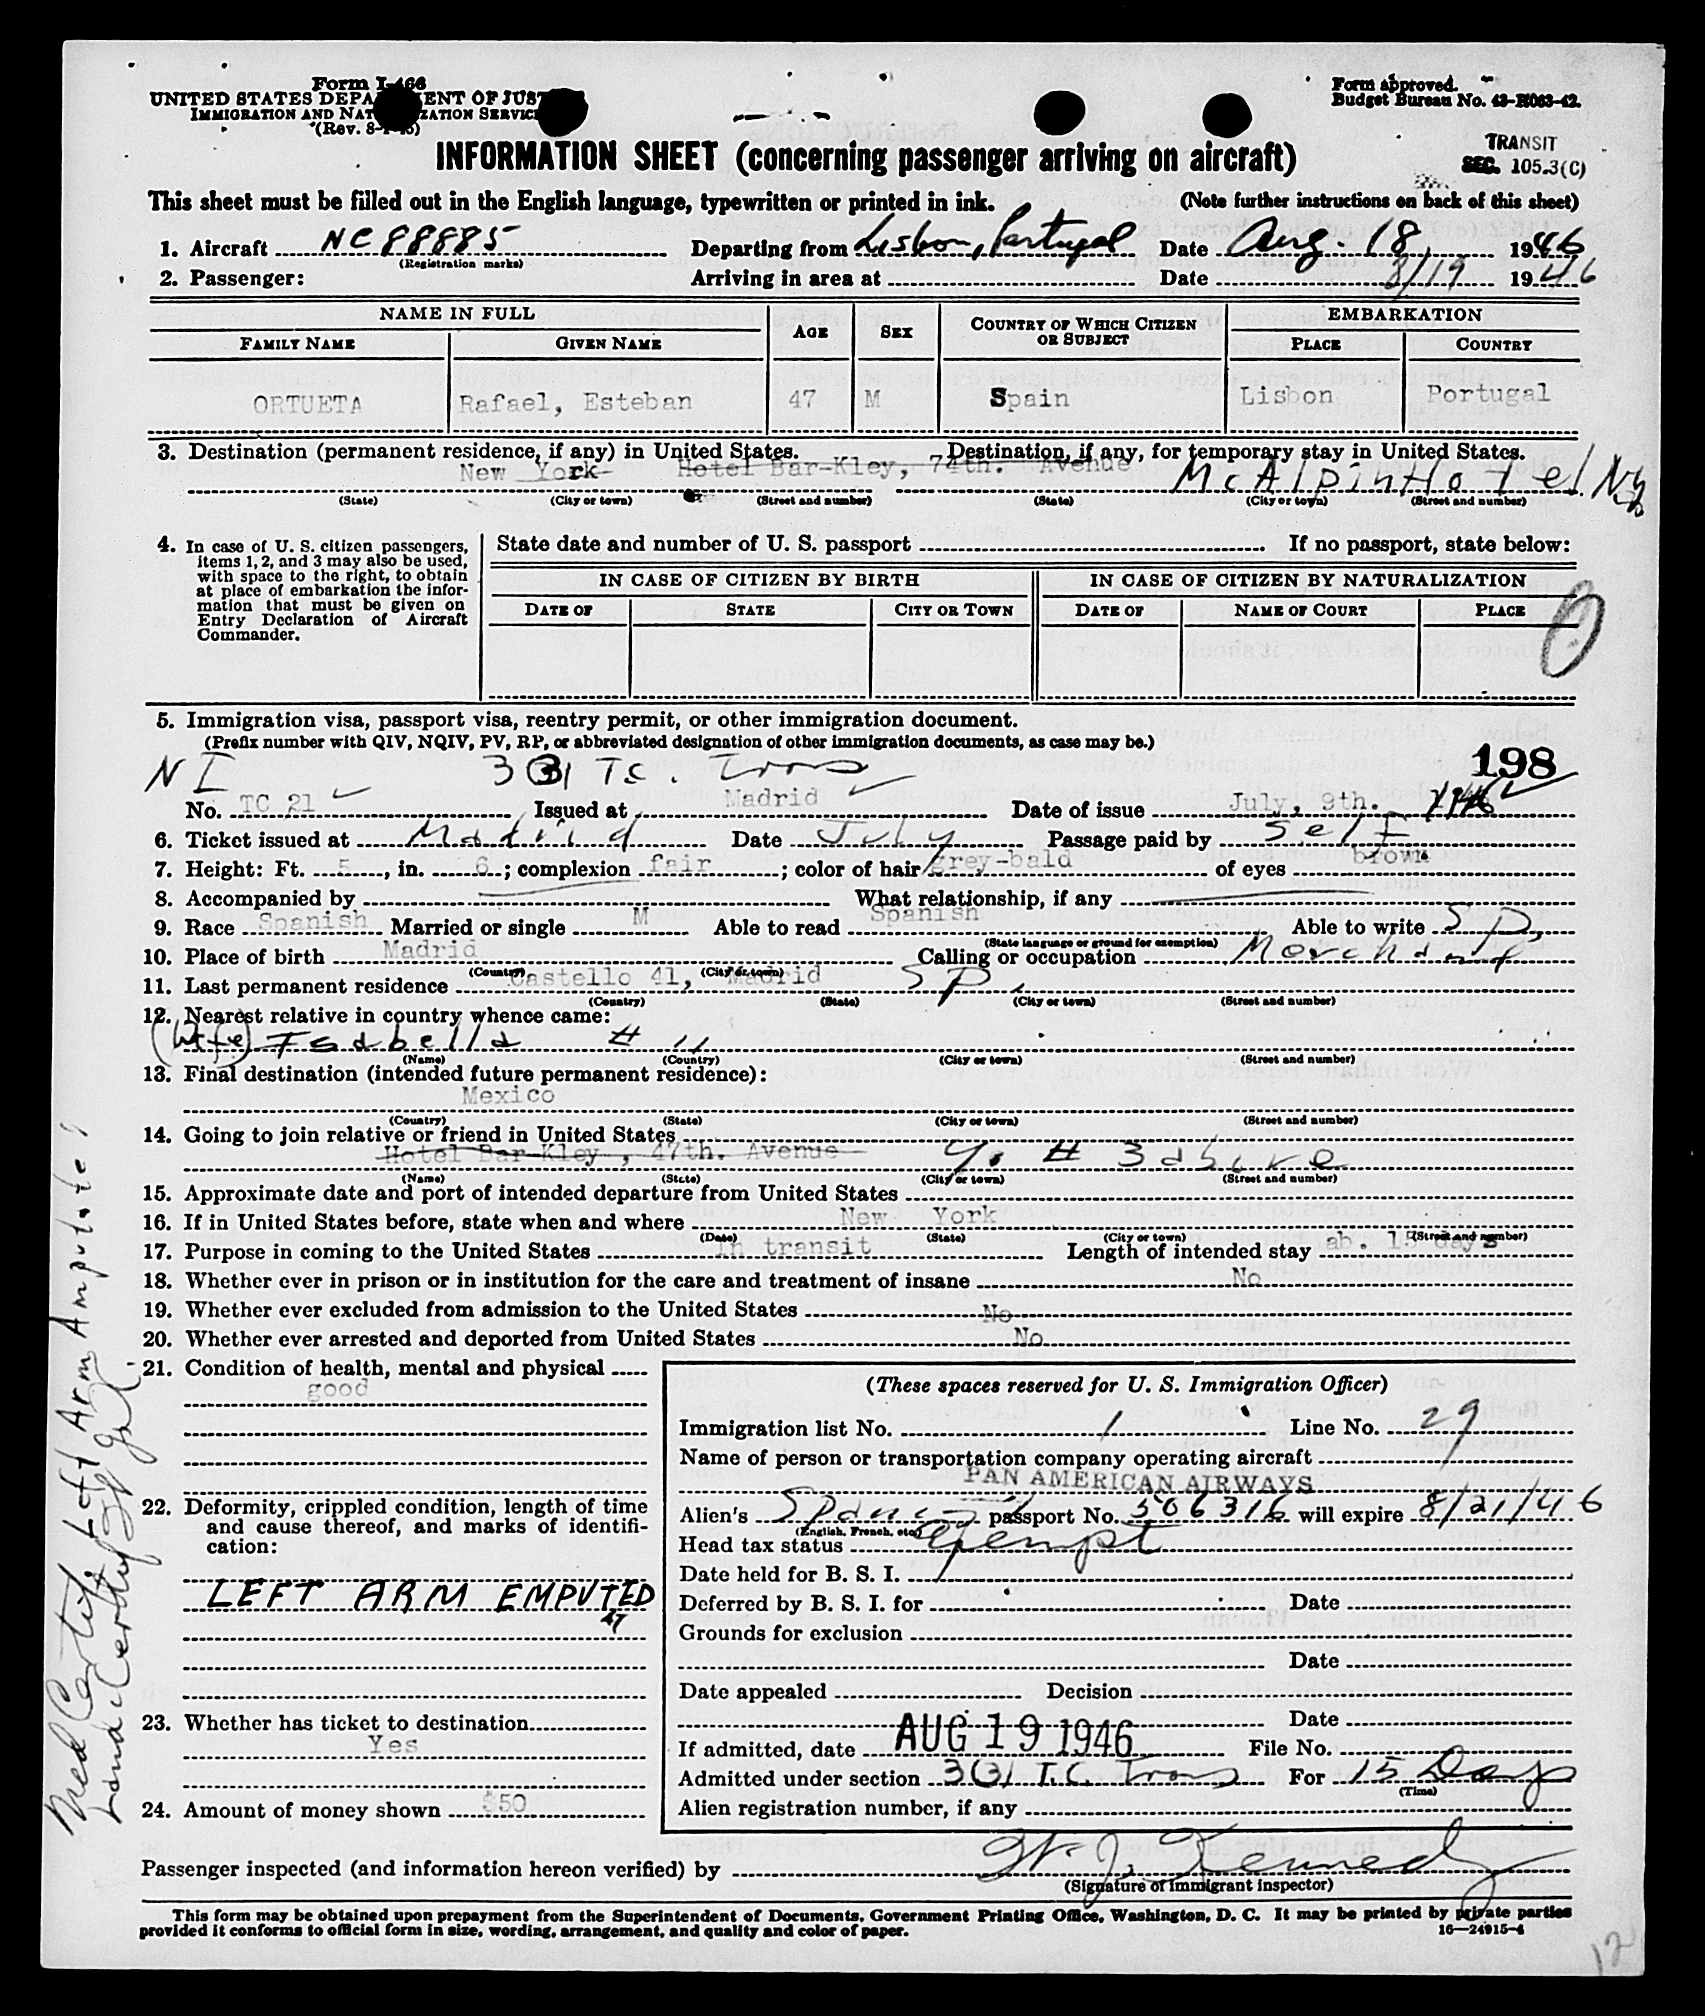 Form I-466
UNITED STATES DEPA ENT OF JUST
IMMIGRATION AND NAT ZATION SERVICE
(Rev. 8-1-45)
Form approved.
Budget Bureau No. 43-R063-42.
TRANSIT
SEC. 105.3(C)
INFORMATION SHEET (concerning passenger arriving on aircraft)
This sheet must be filled out in the English language, typewritten or printed in ink. (Note further instructions on back of this sheet)
1. Aircraft NC 88885 Departing from Lisbon, Portugal Date Aug. 18, 1946
(Registration marks)
2. Passenger: Arriving in area at Date 8/19 1946
NAME IN FULL AGE SEX COUNTRY OF WHICH CITIZEN OR SUBJECT EMBARKATION
FAMILY NAME GIVEN NAME PLACE COUNTRY
ORTUETA Rafael, Esteban 47 M Spain Lisbon Portugal
3. Destination (permanent residence, if any) in United States. Destination, if any, for temporary stay in United States.
New York Hotel Bar-Kley, 74th. Avenue McAlpin Hotel NY
(State) (City or town) (Street and number) (State) (City or town) (Street and number)
4. In case of U. S. citizen passengers, items 1, 2, and 3 may also be used, with space to the right, to obtain at place of embarkation the information that must be given on Entry Declaration of Aircraft Commander.
State date and number of U. S. passport If no passport, state below:
IN CASE OF CITIZEN BY BIRTH IN CASE OF CITIZEN BY NATURALIZATION
DATE OF STATE CITY OR TOWN DATE OF NAME OF COURT PLACE
5. Immigration visa, passport visa, reentry permit, or other immigration document.
(Prefix number with QIV, NQIV, PV, RP, or abbreviated designation of other immigration documents, as case may be.)
NI 3(3) T.C. Trans 198
No. TC 21 Issued at Madrid Date of issue July, 9th. 1946
6. Ticket issued at Madrid Date July Passage paid by Self
7. Height: Ft. 5, in. 6; complexion fair; color of hair grey-bald of eyes brown
8. Accompanied by What relationship, if any
9. Race Spanish Married or single M Able to read Spanish Able to write Sp,
(State language or ground for exemption)
10. Place of birth Madrid Calling or occupation Merchant
(Country) (City or town)
11. Last permanent residence Castello 41, Madrid SP,
(Country) (State) (City or town) (Street and number)
12. Nearest relative in country whence came:
(Wife) Isabella # 11
(Name) (Country) (City or town) (Street and number)
13. Final destination (intended future permanent residence):
Mexico
(Country) (State) (City or town) (Street and number)
14. Going to join relative or friend in United States
Hotel Bar-Kley, 47th. Avenue # 3 above
(Name) (State) (City or town) (Street and number)
15. Approximate date and port of intended departure from United States
16. If in United States before, state when and where New York
(Date) (State) (City or town) (Street and number)
17. Purpose in coming to the United States in transit Length of intended stay ab. 15 days
18. Whether ever in prison or in institution for the care and treatment of insane No
19. Whether ever excluded from admission to the United States No
20. Whether ever arrested and deported from United States No
21. Condition of health, mental and physical
good
22. Deformity, crippled condition, length of time and cause thereof, and marks of identification:
LEFT ARM EMPUTED
AT
23. Whether has ticket to destination
Yes
24. Amount of money shown $50
(These spaces reserved for U. S. Immigration Officer)
Immigration list No. 1 Line No. 29
Name of person or transportation company operating aircraft
PAN AMERICAN AIRWAYS
Alien's Spanish passport No. 506316 will expire 8/21/46
(English, French, etc.)
Head tax status Exempt
Date held for B. S. I.
Deferred by B. S. I. for Date
Grounds for exclusion
Date
Date appealed Decision
Date
If admitted, date AUG 19 1946 File No.
Admitted under section 3(3) T.C. Trans For 15 Days
(Time)
Alien registration number, if any
Passenger inspected (and information hereon verified) by W. J. Kennedy
(Signature of immigrant inspector)
This form may be obtained upon prepayment from the Superintendent of Documents, Government Printing Office, Washington, D. C. It may be printed by private parties
provided it conforms to official form in size, wording, arrangement, and quality and color of paper. 16—24915-4
12
Med Certif. Left Arm Amputated